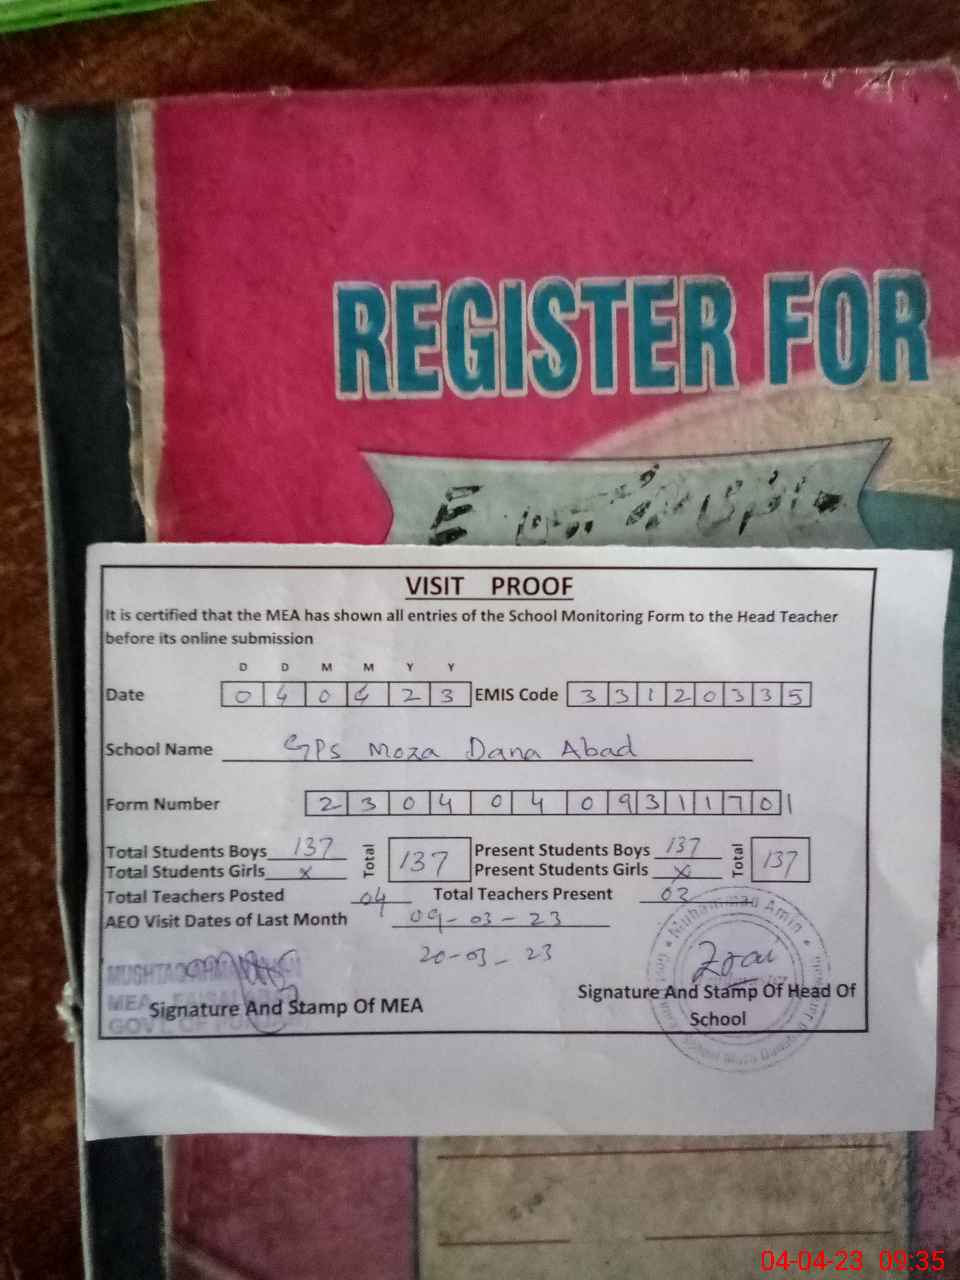 REGISTER FOR
VISIT PROOF
It is certified that the MEA has shown all entries of the School Monitoring Form to the Head Teacher
before its online submission
D D M M Y Y
Date 040423 EMIS Code 33120335
School Name GPS Moza Dana Abad
Form Number 23040409311701
Total Students Boys 137 Total 137 Present Students Boys 137 Total 137
Total Students Girls x Present Students Girls x
Total Teachers Posted 04 Total Teachers Present 03
AEO Visit Dates of Last Month 09-03-23
20-03-23
MUSHTAQ AHMAD
MEA
GOVT OF
Signature And Stamp Of MEA
Muhammad Amin
Signature And Stamp Of Head Of
School
04-04-23 09:35